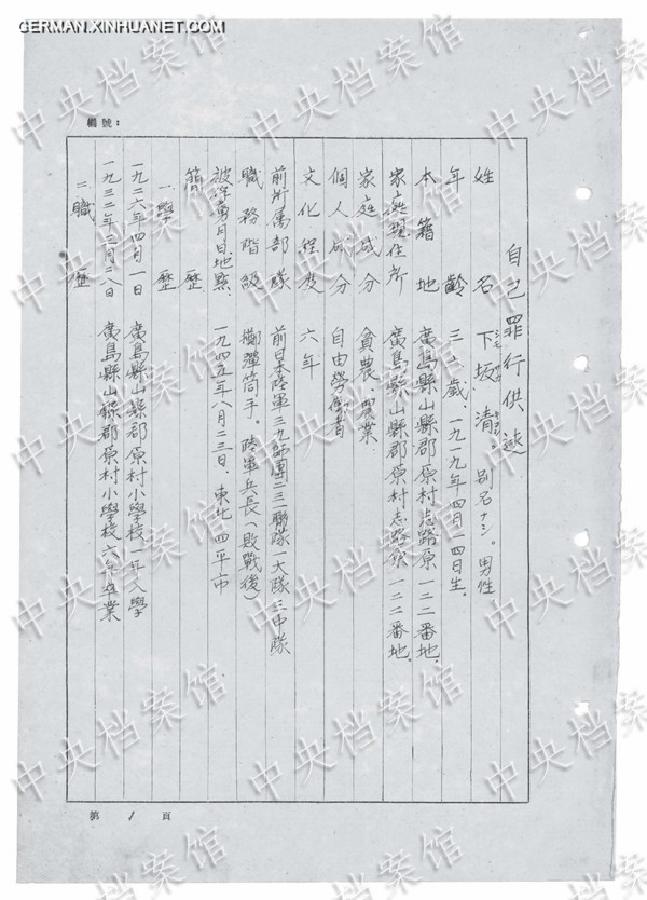 GERMAN.XINHUANET.COM
編號：
自己罪行供述
姓名 下坂清。別名ナシ。男性
年齡 歳、一九一九年四月一四日生。
本籍地 廣島縣山縣郡原村志路原一二二番地。
家庭現住所 廣島縣山縣郡原村志路原一二二番地。
家庭成分 貧農、農業
個人成分 自由勞働者
文化程度 六年
前所屬部隊 前日本陸軍三九師團二三二聯隊一大隊三中隊
職務階級 擲彈筒手。陸軍兵長（敗戰後）
被俘年月日地點、一九四五年八月二三日、東北 四平市
簡歷
一、學歷
一九二六年四月一日 廣島縣山縣郡原村小學校一年入學
一九三二年三月二八日 廣島縣山縣郡原村小學校六年卒業
二、職歷
第 1 頁
中央档案馆